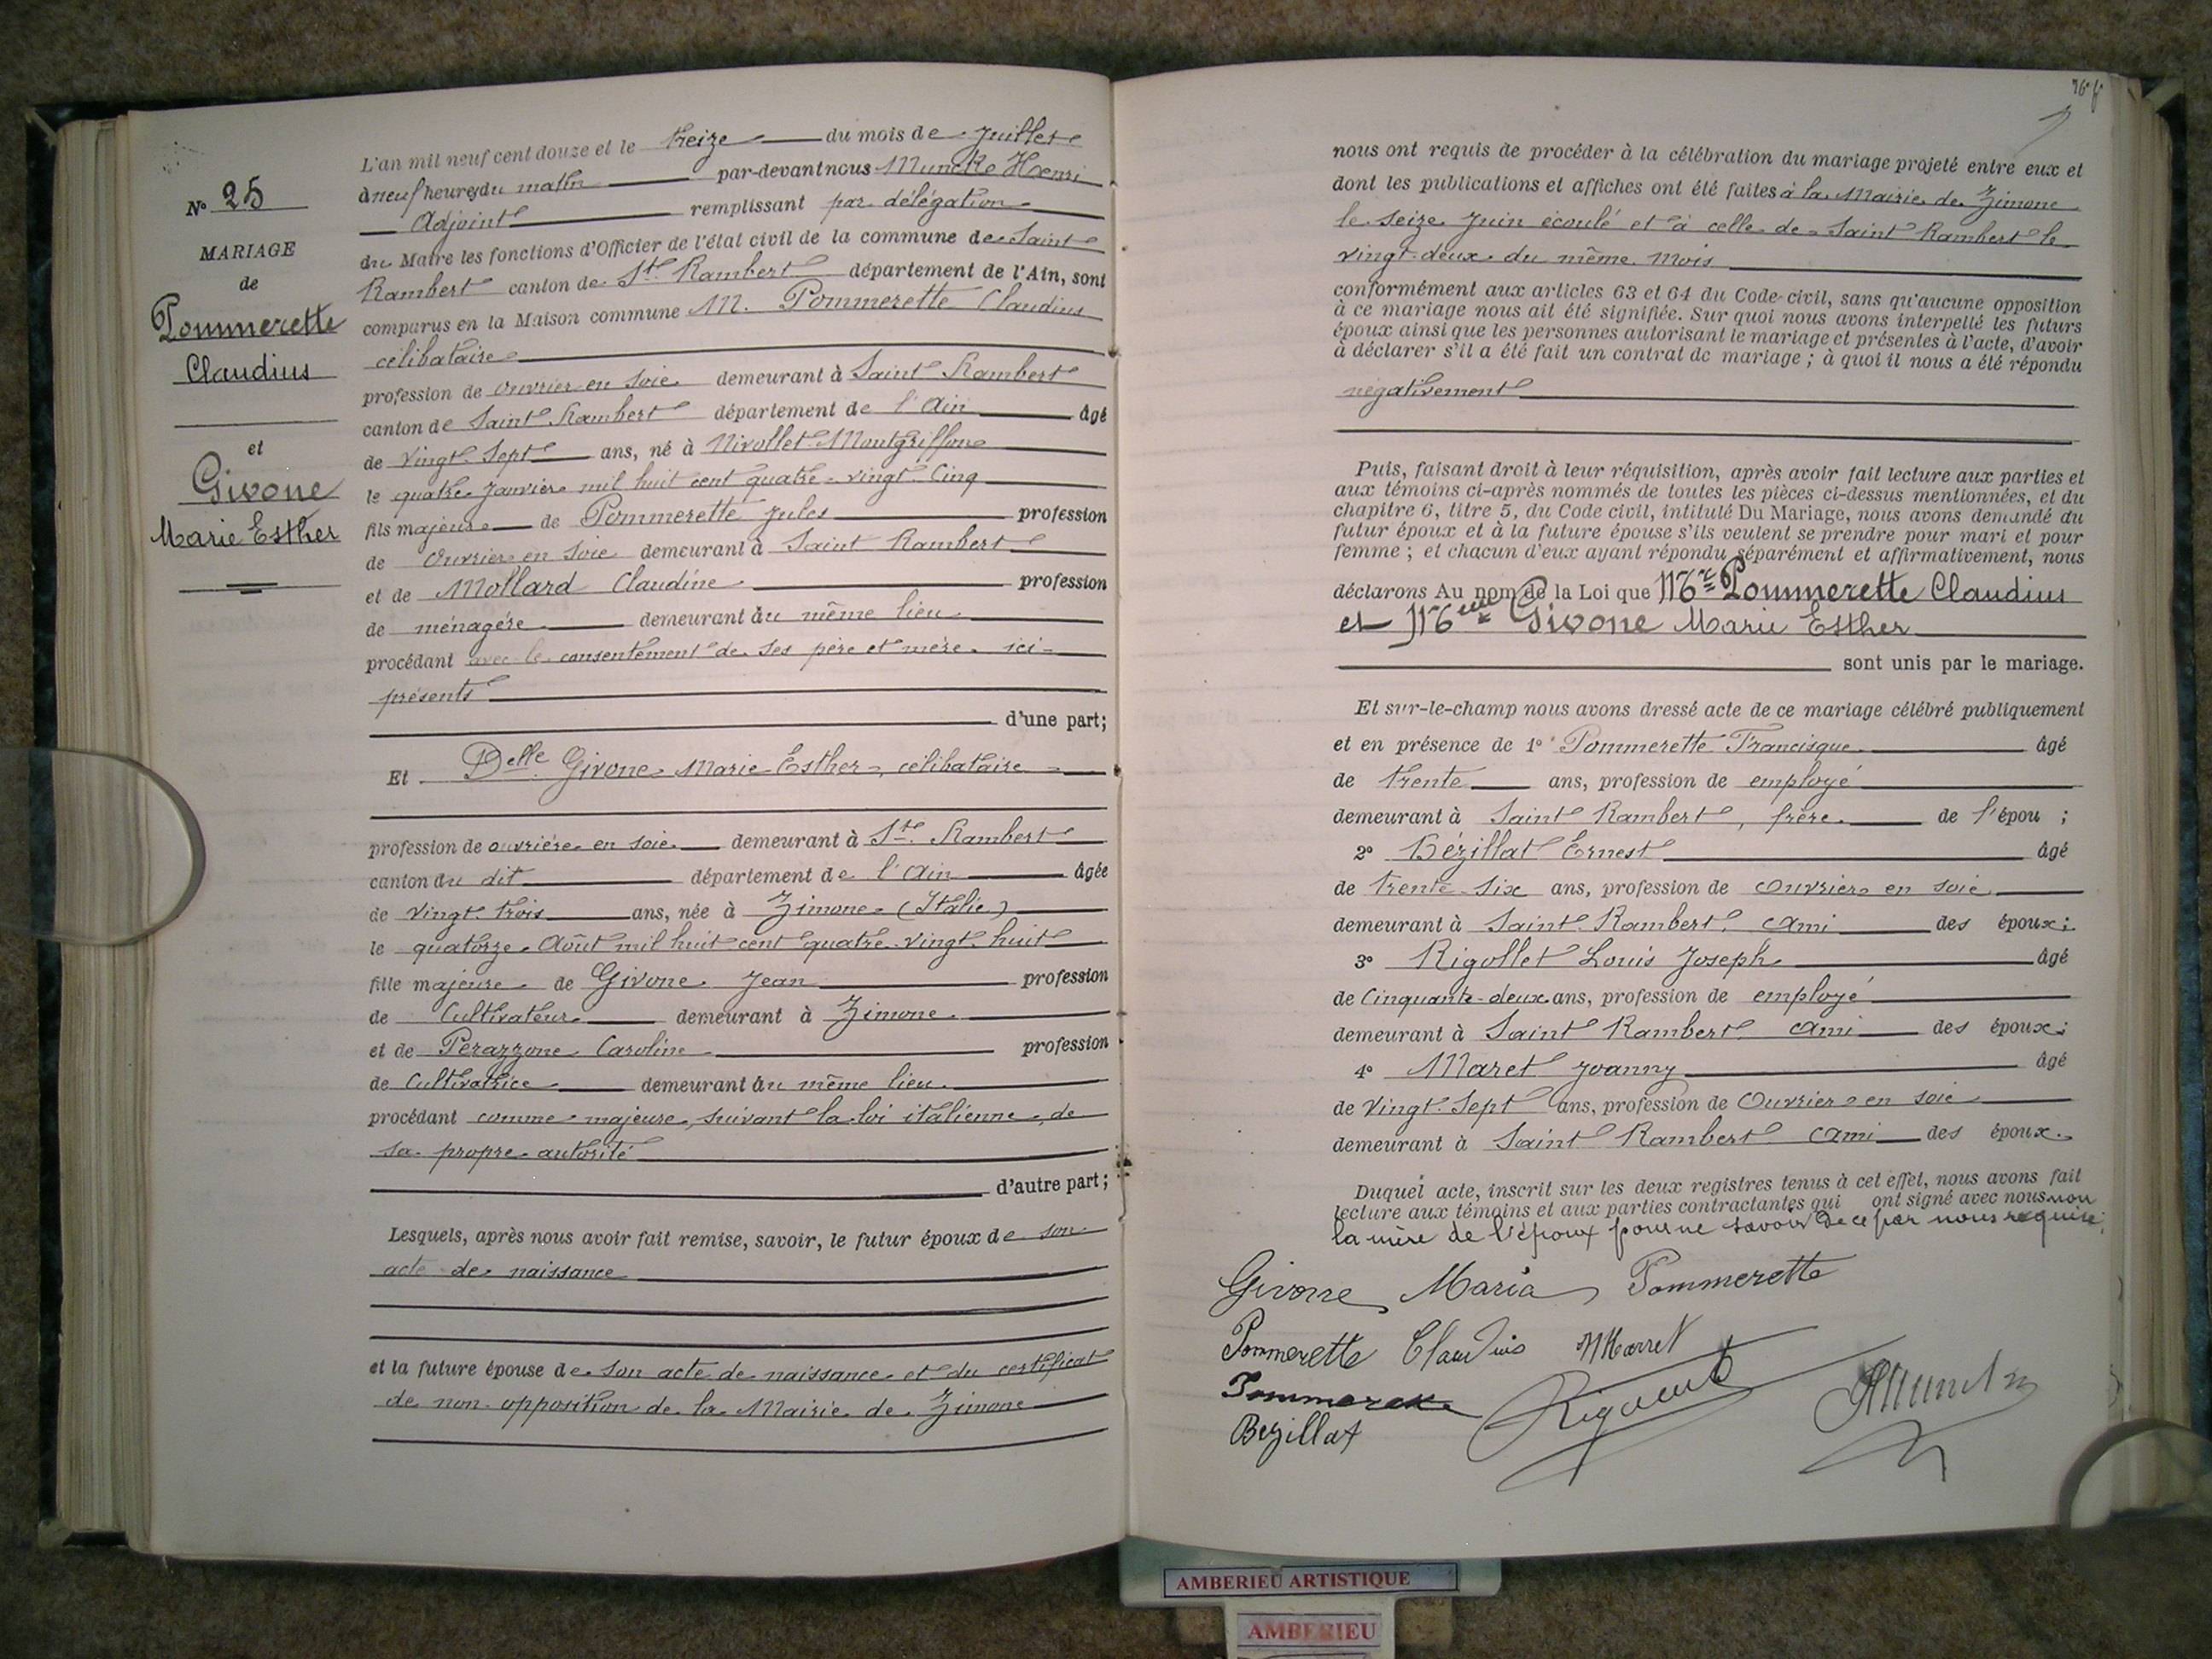 N° 25
MARIAGE
de
Pommerette
Claudius
et
Givone
Marie Esther
L'an mil neuf cent douze et le treize du mois de Juillet
à neuf heures du matin par-devant nous Muncko Henri
Adjoint remplissant par délégation
du Maire les fonctions d'Officier de l'état civil de la commune de Saint
Rambert canton de St Rambert département de l'Ain, sont
comparus en la Maison commune M. Pommerette Claudius
célibataire
profession de ouvrier en soie demeurant à Saint Rambert
canton de Saint Rambert département de l'Ain âgé
de vingt-sept ans, né à Nivollet-Montgriffon
le quatre Janvier mil huit cent quatre-vingt-cinq
fils majeur de Pommerette Jules profession
de ouvrier en soie demeurant à Saint Rambert
et de Mollard Claudine profession
de ménagère demeurant au même lieu
procédant avec le consentement de ses père et mère ici-
présents
d'une part;
Et Delle Givone Marie Esther, célibataire
profession de ouvrière en soie demeurant à St Rambert
canton du dit département de l'Ain âgée
de vingt-trois ans, née à Zimone (Italie)
le quatorze Août mil huit cent quatre-vingt-huit
fille majeure de Givone Jean profession
de Cultivateur demeurant à Zimone
et de Perazzone Caroline profession
de Cultivatrice demeurant au même lieu
procédant comme majeure, suivant la loi italienne, de
sa propre autorité
d'autre part;
Lesquels, après nous avoir fait remise, savoir, le futur époux de son
acte de naissance
et la future épouse de son acte de naissance et du certificat
de non opposition de la Mairie de Zimone
nous ont requis de procéder à la célébration du mariage projeté entre eux et
dont les publications et affiches ont été faites à la Mairie de Zimone
le seize Juin écoulé et à celle de Saint Rambert le
vingt-deux du même mois
conformément aux articles 63 et 64 du Code civil, sans qu'aucune opposition
à ce mariage nous ait été signifiée. Sur quoi nous avons interpellé les futurs
époux ainsi que les personnes autorisant le mariage et présentes à l'acte, d'avoir
à déclarer s'il a été fait un contrat de mariage ; à quoi il nous a été répondu
négativement
Puis, faisant droit à leur réquisition, après avoir fait lecture aux parties et
aux témoins ci-après nommés de toutes les pièces ci-dessus mentionnées, et du
chapitre 6, titre 5, du Code civil, intitulé Du Mariage, nous avons demandé au
futur époux et à la future épouse s'ils veulent se prendre pour mari et pour
femme ; et chacun d'eux ayant répondu séparément et affirmativement, nous
déclarons Au nom de la Loi que Mr Pommerette Claudius
et Melle Givone Marie Esther
sont unis par le mariage.
Et sur-le-champ nous avons dressé acte de ce mariage célébré publiquement
et en présence de 1° Pommerette Francisque âgé
de trente ans, profession de employé
demeurant à Saint Rambert, frère de l'épou ;
2° Bézillat Ernest âgé
de trente-six ans, profession de ouvrier en soie
demeurant à Saint Rambert, ami des époux;
3° Rigollet Louis Joseph âgé
de Cinquante-deux ans, profession de employé
demeurant à Saint Rambert ami des époux;
4° Maret Joanny âgé
de vingt-sept ans, profession de Ouvrier en soie
demeurant à Saint Rambert ami des époux.
Duquel acte, inscrit sur les deux registres tenus à cet effet, nous avons fait
lecture aux témoins et aux parties contractantes qui ont signé avec nous non
la mère de l'époux pour ne savoir de ce par nous requise.
Givone Maria Pommerette
Pommerette Claudius Marret
Bezillat
AMBERIEU ARTISTIQUE
AMBERIEU